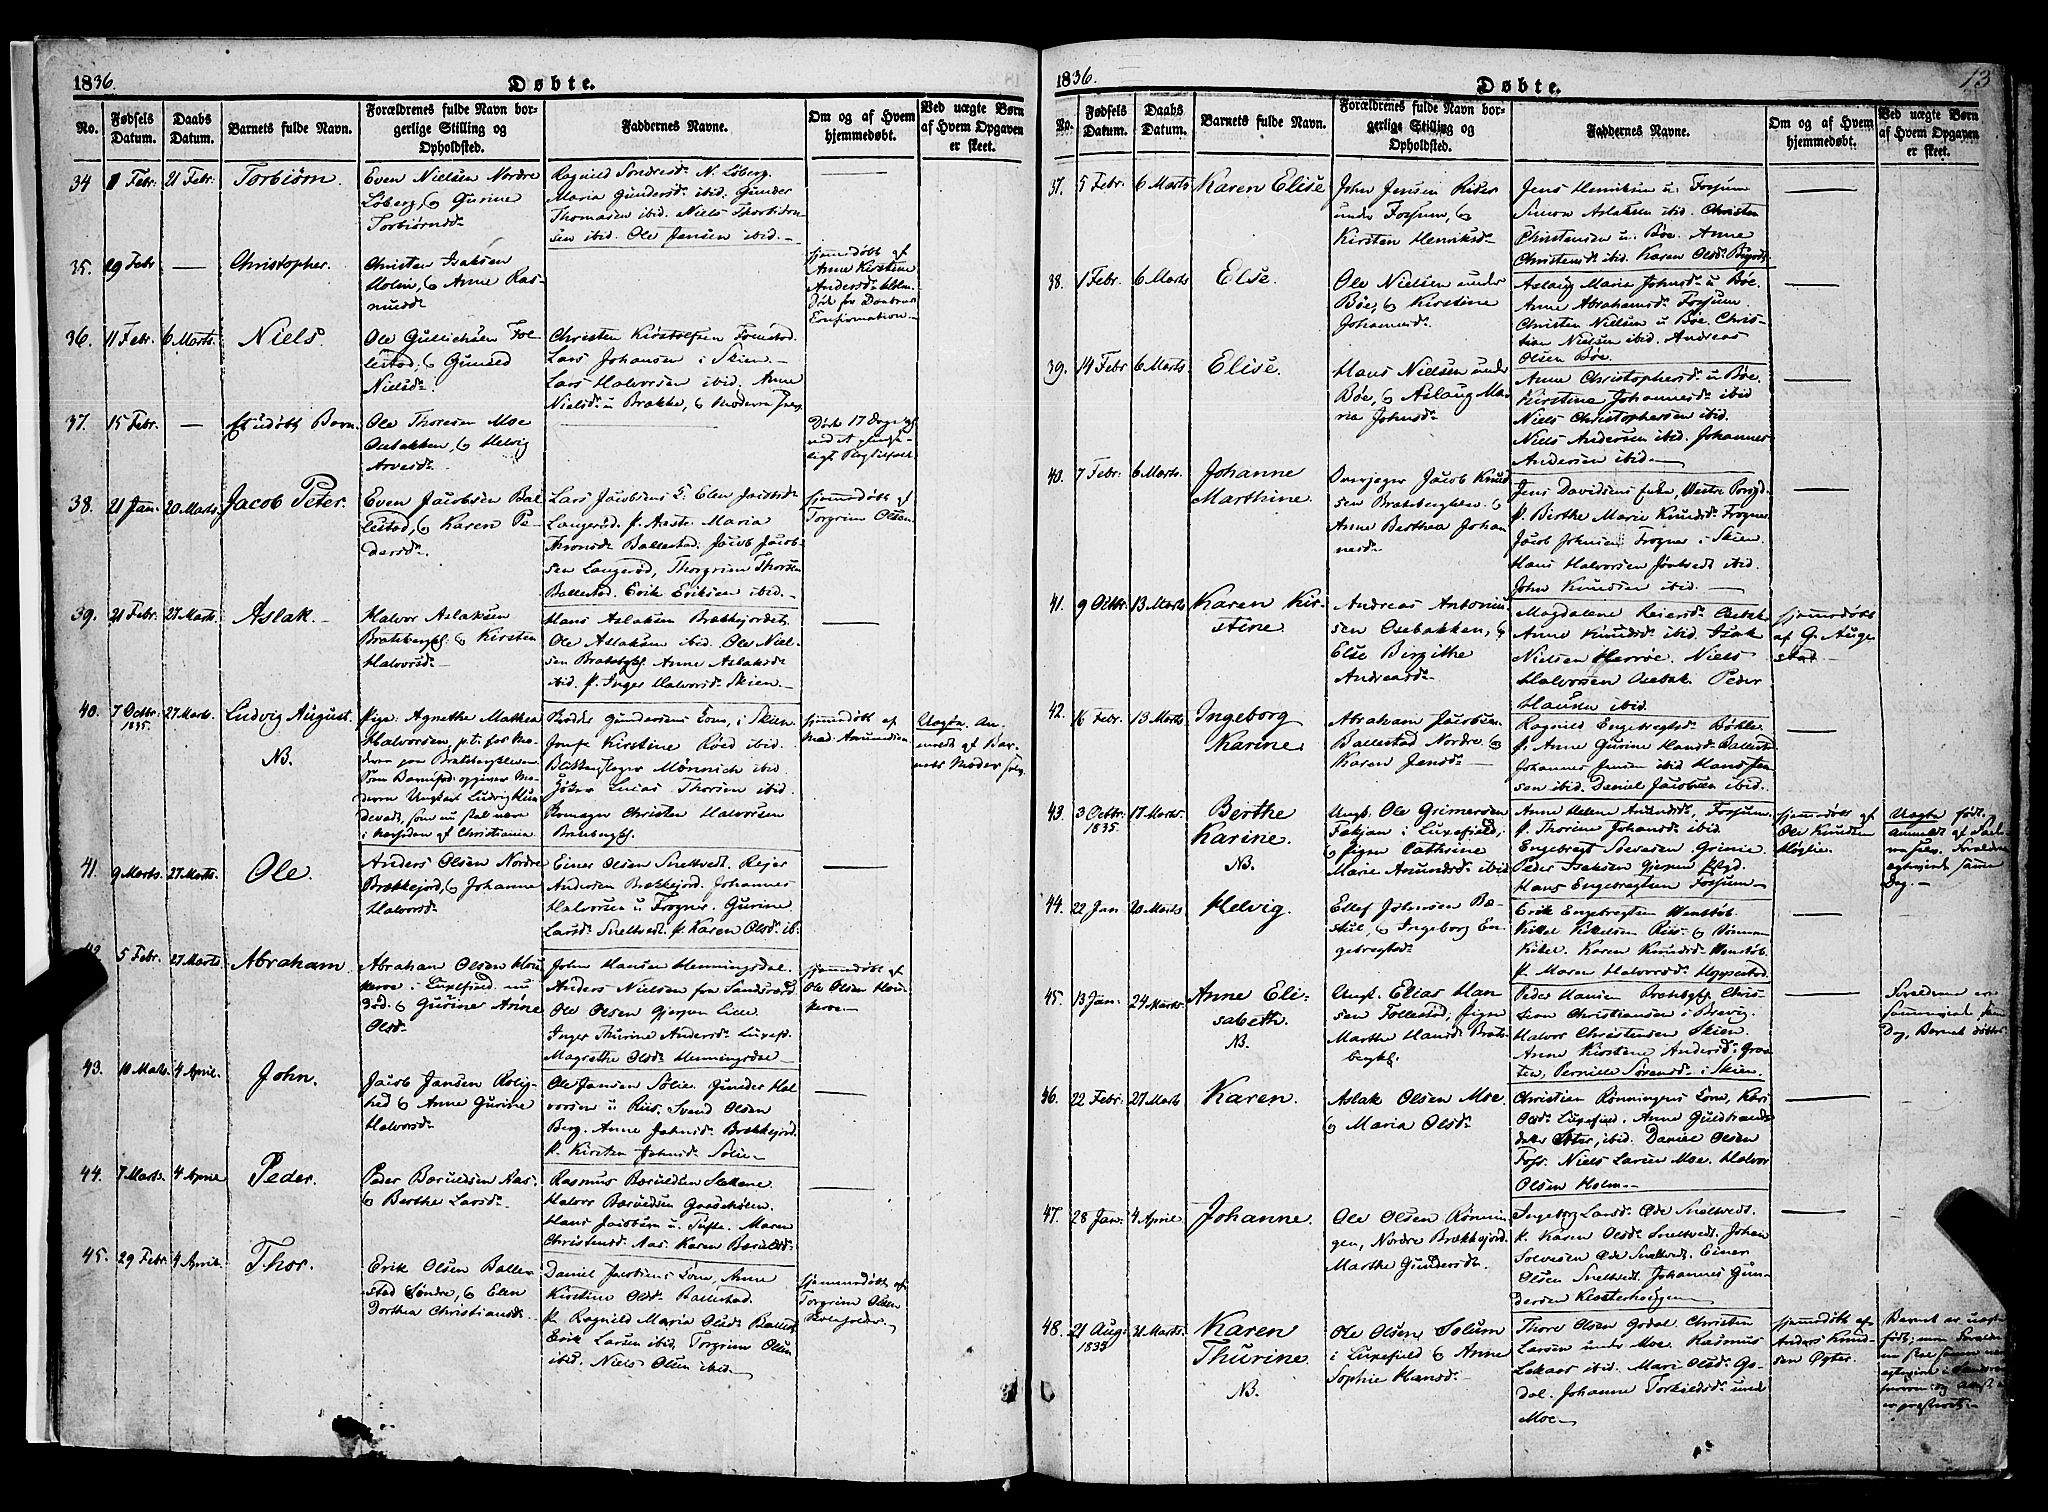 1836.
Døbte.
No.
Fødsels Datum.
Daabs Datum.
Barnets fulde Navn.
Forældrenes fulde Navn borgerlige Stilling og Opholdsted.
Faddernes Navne.
Om og af Hvem hjemmedøbt.
Ved uægte Børn af Hvem Opgaven er skeet.
34 1 Febr: 21 Febr: Torbiørn.
Even Nielsen Nordre
Løberg, & Gurine
Torbiørnsd:
Ragnild Sondresd: N. Løberg.
Maria Gundersd: ibid. Gunder
Thomasen ibid. Niels Thorbiørn-
sen ibid. Ole Jensen ibid.
35. 19 Febr — Christopher.
Christen Isaksen
Holm, & Anne Ras-
musd:
hjemmedøbt af
Anne Kirstine
Andersd: Holm.
36. 11 Febr. 6 Marts. Niels.
Ole Gullichsen Fol-
lestad, & Gunild
Nielsd:
Christen Kirstofersen Follestad.
Lars Johansen i Skien.
Lars Halvorsen ibid. Anne
Nielsd: u Brække, & Moderen selv
37. 15 Febr. — Et udøbt Barn.
Ole Thoresen Moe
Osebakken, & Helvig
Arvesd:
38. 21 Jan: 20 Marts. Jacob Peter.
Even Jacobsen Bal-
lestad, & Karen Pe-
dersd:
Lars Jacobsens K. Elen Jacobsd:
Langerød. p. Aaste Maria
Thronsd: Ballestad. Jacob Jacob-
sen Langerød, Thorgrim Thorsen
Ballestad. Erik Eriksen ibid.
hjemmedøbt af
Torgrim Olsen
39. 21 Febr. 27 Marts. Aslak.
Halvor Aslaksen
Bratsbergkl. & Kirsten
Halvorsd:
Hans Aslaksen Brækkejordet.
Ole Aslaksen ibid. Ole Niel-
sen Bratsbgkl. Anne Aslaksd:
ibid. p. Inger Halvorsd: Skien.
40. 7 Octbr: 1835. 27 Marts. Ludvig August.
NB.
Pige Agnethe Mathea
Halvorsen, p.t. hos Mo-
deren paa Bratsbergkleven
Som Barnefad: opgiver Mo-
deren Ungkarl Ludvig Mun
i Nærheden af Christiania
Jomfr. Kirstine Røed ibid.
Mönnich ibid.
Lucas Thorsen ibid.
Christen Halvorsen
Bratsbergkl.
hjemmedøbt af
Mad: Amundsen
Uægte. An-
meldt af Bar-
nets Moder selv
41. 9 Marts. 27 Marts. Ole.
Anders Olsen Nordre
Brækkejord, & Johanne
Halvorsd:
Einer Olsen Sneltvedt. Rejer
Andersen Brækkejord. Johannes
Halvorsen u Frogner. Gurine
Larsd: Sneltvedt. p. Karen Olsd: ib.
42 5 Febr. 27 Marts. Abraham.
Abraham Olsen Hou-
kerøe i Luxefjeld, nu
død. & Gurine Anne
Olsd:
John Hansen Henningsdal.
Anders Nielsen fra Sandsværd
Ole Olsen Gjerpen Lille.
Inger Thurine Andersd: Luxefj.
Magrethe Olsd: Henningsdal
hjemmedøbt af
Ole Olsen Hou-
kerøe
43. 10 Marts. 4 April. John.
Jacob Jansen Rolig-
hed & Anne Gurine
Halvorsd:
Ole Jansen Sølie. Gunder Hal-
vorsen u Riis. Svend Olsen
Berg. Anne Johnsd: Brækkejord.
p. Kirsten Johnsd: Sølie
44. 7 Marts. 4 April Peder.
Peder Baruldsen Aas.
& Berthe Larsd:
Rasmus Baruldsen Slekane.
Halvor Baruldsen Gaasehølen.
Hans Jacobsen u. Tufte. Maren
Christensd: Aas. Karen Baruldsd:
45. 29 Febr. 4 April. Thor.
Erik Olsen Balle-
stad Søndre, & Elen
Dorthea Christiansd:
Daniel Jacobsens Kone, Anne
Kirstine Olsd: Ballestad.
p. Ragnild Maria Olsd: Ballest.
Erik Larsen ibid, Torgrim Olsen
ibid. Niels Olsen ibid
hjemmedøbt af
Torgrim Olsen
13
1836.
Døbte.
No.
Fødsels Datum.
Daabs Datum.
Barnets fulde Navn.
Forældrenes fulde Navn borgerlige Stilling og Opholdsted.
Faddernes Navne.
Om og af Hvem hjemmedøbt.
Ved uægte Børn af Hvem Opgaven er skeet.
37. 5 Febr. 6 Marts Karen Elise
John Jensen Riser
under Fossum, &
Kirsten Henriksd:
Jens Henriksen u. Fossum
Simon Aslaksen ibid. Christen
Christensen u. Bøe. Anne
Christensd: ibid. Karen Olsd:
38. 1 Febr. 6 Marts Elise.
Ole Nielsen under
Bøe, & Kirstine
Johannesd:
Aslaug Maria Johnsd: u Bøe.
Anne Abrahamsd: Fossum.
Christen Nielsen u Bøe. Chris-
tian Nielsen ibid. Andreas
Olsen Bøe.
39. 14 Febr 6 Marts Elise.
Hans Nielsen under
Bøe, & Aslaug Ma-
ria Johnsd:
Anne Christophersd: u Bøe.
Kirstine Johannesd: ibid
Niels Christophersen ibid.
Niels Andersen ibid. Johannes
Andersen ibid.
40. 7 Febr. 6 Marts. Johanne
Marthine.
Overjæger Jacob Knud-
sen Bratsbergklev. &
Anne Berthea Johan-
nesd:
Jens Davidsens Enke, Westre Porsgd.
p. Berthe Marie Knudsd: Frogner
Jacob Johnsen Frogner i Skien.
Hans Halvorsen ibid.
John Knudsen ibid.
41. 9 Octbr 13 Marts Karen Kir-
stine.
Andreas Antoniu-
sen Osebakken, &
Else Birgithe
Andreasd:
Magdalene Reiersd: Osebak.
Anne Knudsd: ibid. Isak
Nielsen Herrøe. Niels
Halvorsen Osebak. Peder
Hansen ibid.
hjemmedøbt
af G. Auge-
stad
42. 16 Febr. 13 Marts. Ingeborg
Karine.
Abraham Jacobsen
Ballestad Nordre &
Karen Jensd:
Ragnild Engebregtsd: Bøhle.
p. Anne Gurine Hansd: Ballestad
Johannes Jensen ibid Hans Jen-
sen ibid. Daniel Jacobsen ibid.
43. 3 Octbr: 1835. 17 Marts. Berthe
Karine.
NB.
Ungk. Ole Grimersen
Fakjan i Luxefjeld,
& Pigen Cathrine
Marie Amundsd: ibid
Anne Helene Amundsd: Fossum.
p. Thorine Johansd: ibid
Engebregt Sivesen Grinie
Peder Isaksen Gjerpen Pstgd.
Hans Engebregtsen Fossum
hjemmedøbt af
Ole Knudsen
Høglie.
Uægte født.
Anmeldt af Fade-
ren selv. Forældrene
egteviede samme
Dag.
44. 22 Jan. 20 Marts. Helvig.
Ellef Johnsen Bø-
stul, & Ingeborg En-
gebregtsd:
Erik Engebregtsen Wenstøb.
Kittel Kittelsen Riis. &
Kittel. Karen Knudsd: Wenstøb.
p. Maren Halvorsd: Hoppestad.
45. 13 Jan: 24 Marts. Anne Eli-
sabeth.
NB.
Ungk. Elias Han-
sen Follestad, Pigen
Marthe Hansd: Brats-
bergkl.
Peder Hansen Bratsbgkl. Chris-
tian Christiansen i Brevig.
Halvor Christensen Skien.
Anne Kirstine Andersd: Graa-
ten, Pernille Sørensd: i Skien.
Forældrene ere
sammenviede samme
Dag, Barnet døbtes
46. 22 Febr. 27 Marts Karen.
Aslak Olsen Moe
& Maria Olsd:
Christian Rønningens Kone, Kari
Olsd: Luxefjeld. Anne Guldbrands-
datter Sæter, ibid. Daniel Olsen
Foss. Niels Larsen Moe. Halvor
Olsen Holm
47. 28 Jan: 4 April. Johanne.
Ole Olsen Rønnin-
gen, Nordre Brækkejord.
Marthe Gundersd:
Ingeborg Larsd: Øde Sneltvedt.
p. Karen Olsd: Sneltvedt. Johan
Solvesen Øde Sneltvedt. Einer
Olsen Sneltvedt. Johannes Gun-
dersen Klosterhougen
48. 21 Aug: 1835 31 Marts. Karen
Thurine.
NB.
Ole Olsen Solum
i Luxefjeld & Anne
Sophie Hansd:
Thore Olsen Godal. Christen
Larsen under Moe. Rasmus
Lakaas ibid. Mari Olsd: Go-
dal. Johanne Torkildsd: under
Moe.
hjemmedøbt af
Anders Knud-
sen Øyter.
Barnet er uægte
født; men Forældrene